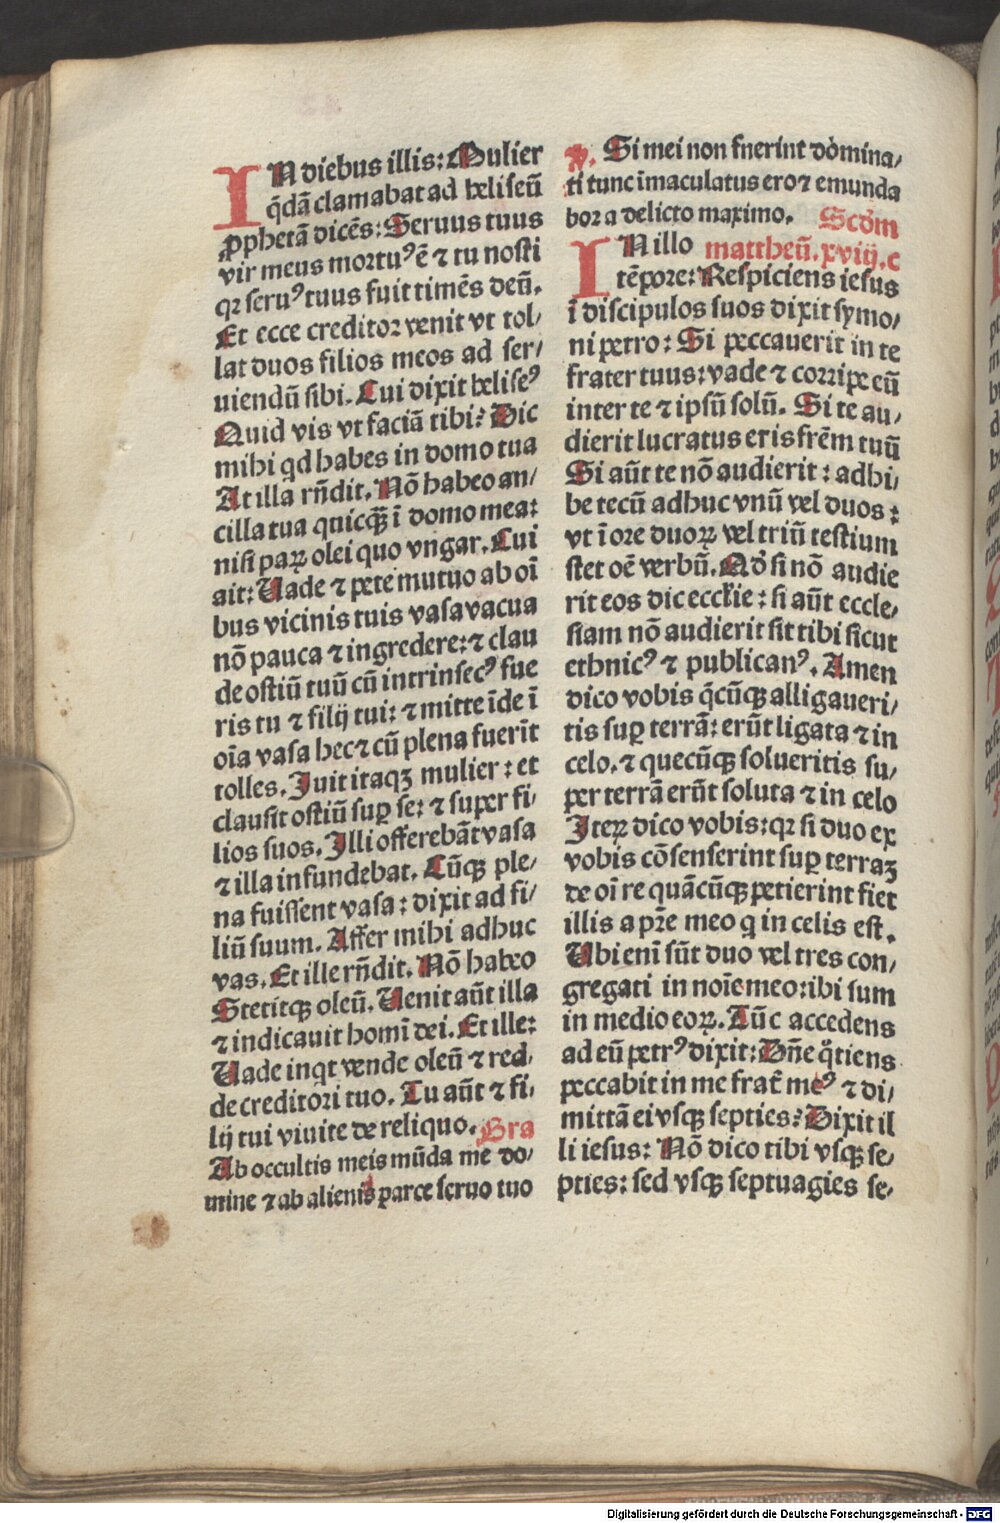 IN diebus illis: Mulier
q̄dā clamabat ad heliseū
ꝓphetā dicēs: Seruus tuus
vir meus mortuꝰ ē ⁊ tu nosti
qꝛ seruꝰ tuus fuit timēs deū.
Et ecce creditoꝛ venit vt tol⸗
lat duos filios meos ad ser⸗
uiendū sibi. Cui dixit heliseꝰ
Quid vis vt faciā tibi? Dic
mihi qd habes in domo tua
At illa rn̄dit. Nō habeo an⸗
cilla tua quicq̄ȝ ī domo mea:
nisi parꝝ olei quo vngar. Cui
ait: Uade ⁊ pete mutuo ab oī
bus vicinis tuis vasa vacua
nō pauca ⁊ ingredere: ⁊ clau
de ostiū tuū cū intrinsecꝰ fue
ris tu ⁊ filij tui: ⁊ mitte īde ī
oīa vasa hec ⁊ cū plena fuerīt
tolles. Iuit itaqȝ mulier: et
clausit ostiū suꝑ se: ⁊ super fi⸗
lios suos. Illi offerebāt vasa
⁊ illa infundebat. Cūqȝ ple⸗
na fuissent vasa: dixit ad fi⸗
liū suum. Affer mihi adhuc
vas. Et ille rn̄dit. Nō habeo
Stetitqȝ oleū. Uenit aūt illa
⁊ indicauit homī dei. Et ille:
Uade inqt vende oleū ⁊ red⸗
de creditori tuo. Tu aūt ⁊ fi⸗
lij tui viuite de reliquo. Gra
Ab occultis meis mūda me do⸗
mine ⁊ ab alienis parce seruo tuo
v. Si mei non fuerint domina⸗
ti tunc īmaculatus ero ⁊ emunda
bor a delicto maximo. Scdm
IN illo mattheū. xviij. c
tēpore: Respiciens iesus
ī discipulos suos dixit symo⸗
ni petro: Si peccauerit in te
frater tuus: vade ⁊ corripe eū
inter te ⁊ ipsū solū. Si te au⸗
dierit lucratus eris frēm tuū
Si aūt te nō audierit: adhi⸗
be tecū adhuc vnū vel duos:
vt ī ore duoꝝ vel triū testium
stet oē verbū. Qd̓ si nō audie
rit eos dic eccl̄ie: si aūt eccle⸗
siam nō audierit sit tibi sicut
ethnicꝰ ⁊ publicanꝰ. Amen
dico vobis q̄cūqȝ alligaueri⸗
tis suꝑ terrā: erūt ligata ⁊ in
celo. ⁊ quecūqȝ solueritis su⸗
per terrā erūt soluta ⁊ in celo
Iteꝝ dico vobis: qꝛ si duo ex
vobis cōsenserint suꝑ terraȝ
de oī re quācūqȝ petierint fiet
illis a pr̄e meo q in celis est.
Ubi enī sūt duo vel tres con⸗
gregati in noīe meo: ibi sum
in medio eoꝝ. Tūc accedens
ad eū petrꝰ dixit: Dn̄e q̄tiens
peccabit in me frat̄ meꝰ ⁊ di⸗
mittā ei vsqȝ septies? Dixit il
li iesus: Nō dico tibi vsqȝ se⸗
pties: sed vsqȝ septuagies se⸗
Digitalisierung gefördert durch die Deutsche Forschungsgemeinschaft - DFG